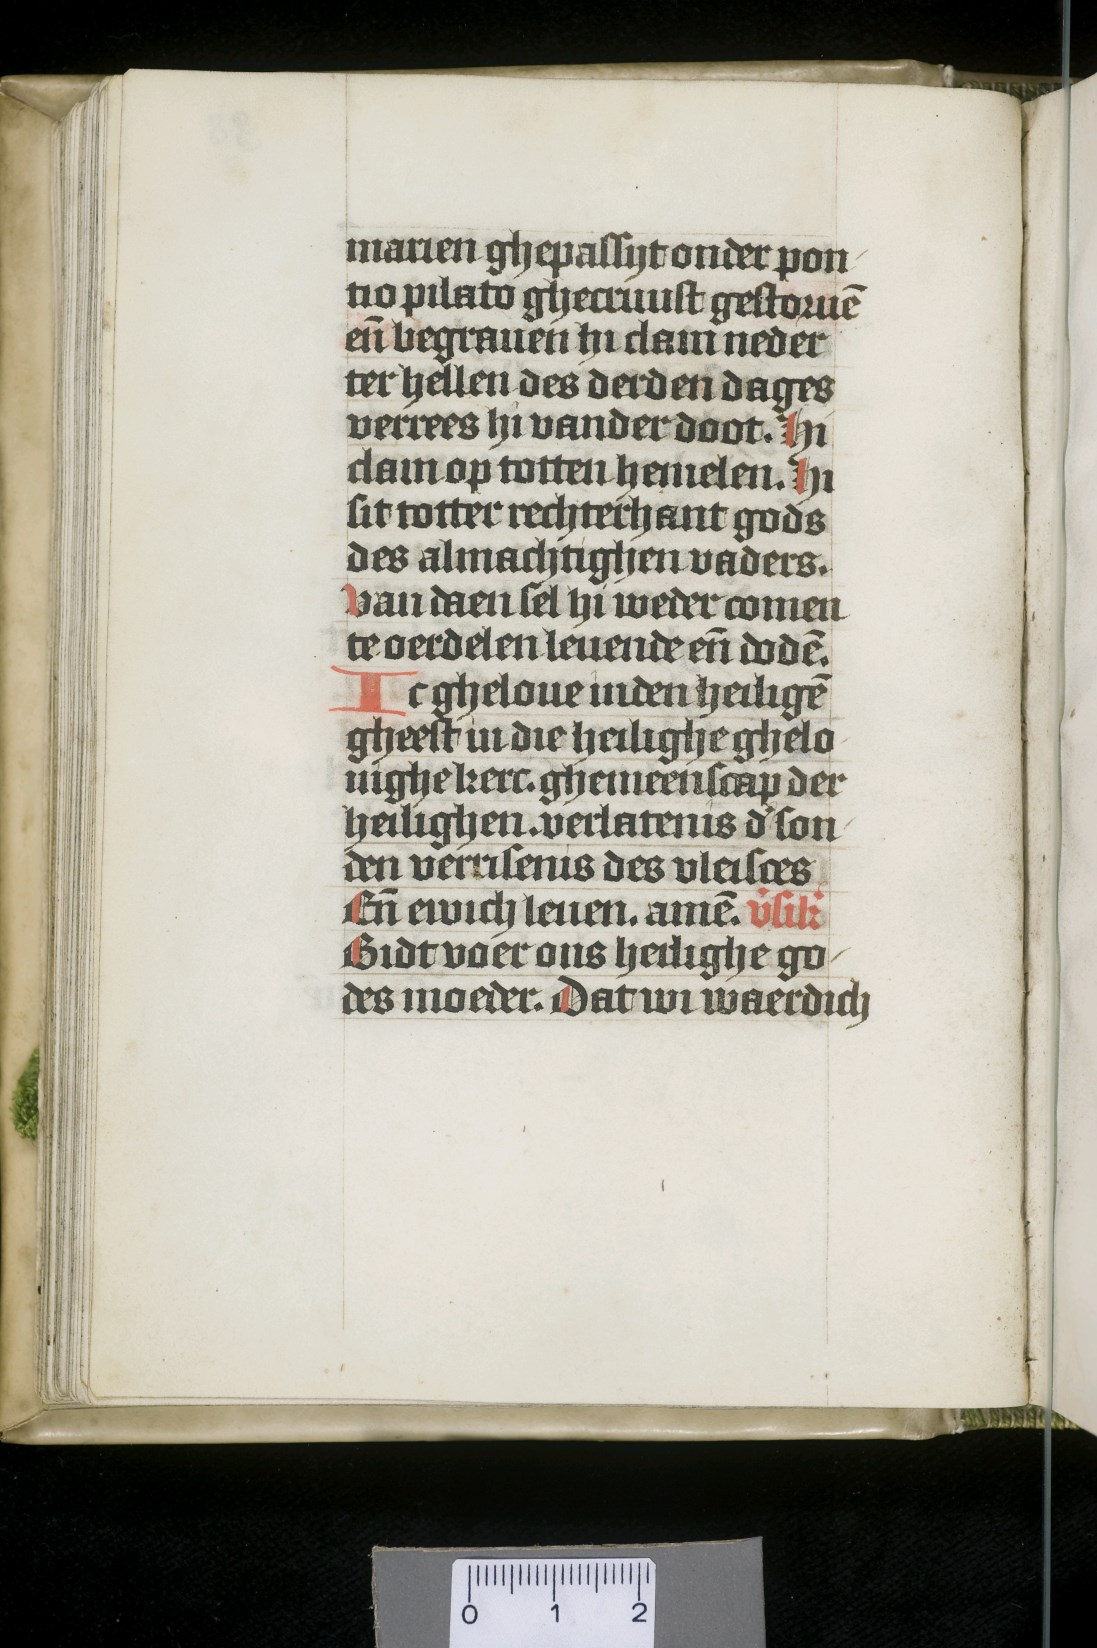 marien ghepassijt onder pon
tio pilato ghecruust gestoruē
eñ begrauen hi clam neder
ter hellen des derden dages
verrees hi vander doot. Hi
clam op totten hemelen. Hi
sit totter rechterhant gods
des almachtighen vaders.
Van daen sel hi weder comen
te oerdelen leuende eñ dodē.
Ic gheloue inden heiligē
gheest in die heilighe ghelo
uighe kerc. ghemeenscap der
heilighen. verlatenis d' son
den verrisenis des vleisces
Eñ ewich leuen. amē. v̓sik̓
Bidt voer ons heilighe go
des moeder. Dat wi waerdich
0 1 2